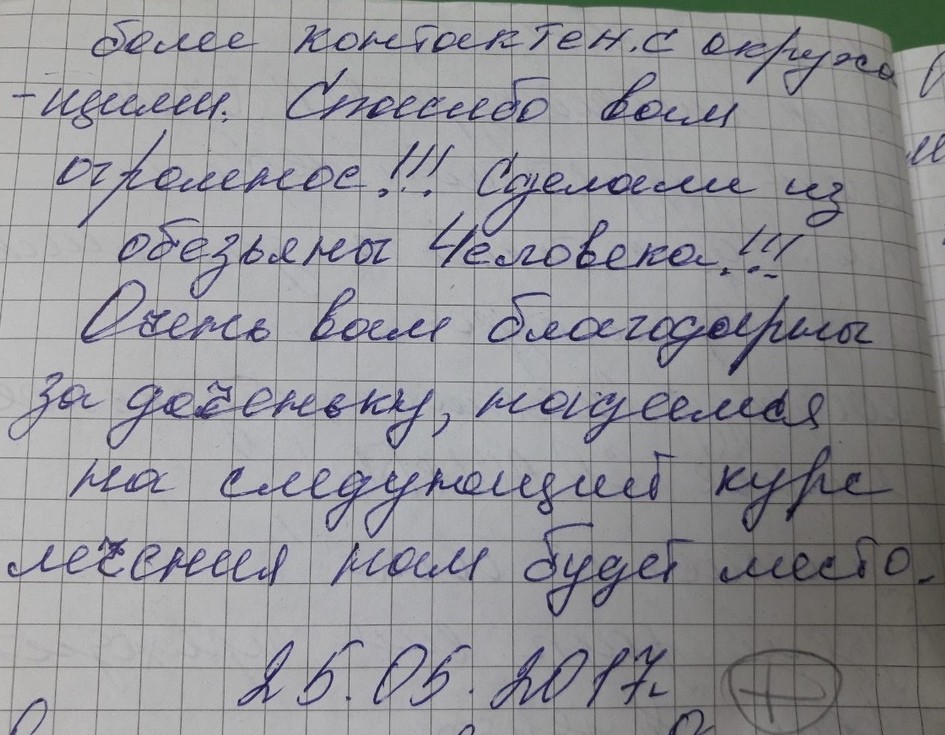 более контактен.с окружа
-ищими. Спасибо вам
огромное!!! Сделали из
обезьяны Человека.!!!
Очень вам благодарны
за доченьку, надеемся
на следующий курс
лечения нам будет место.
25.05.2017г.